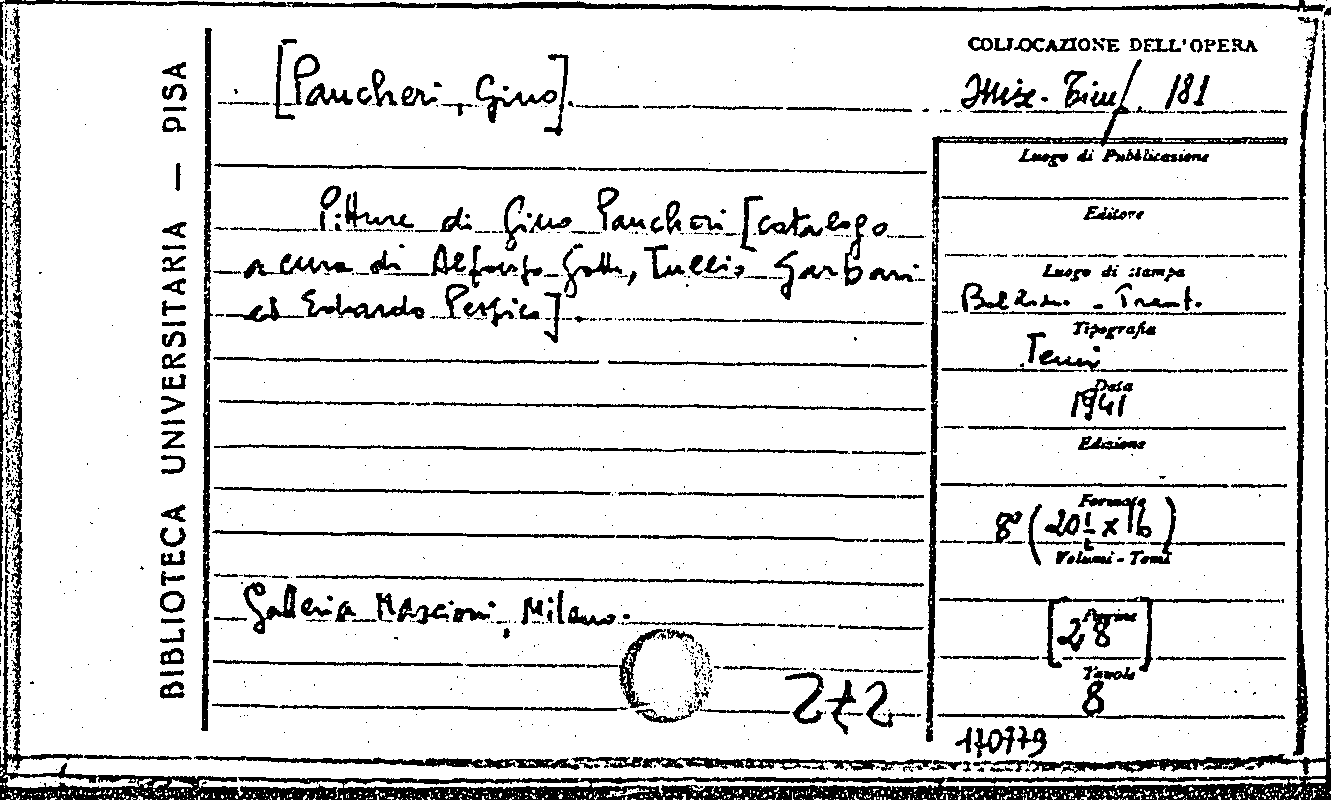 BIBLIOTECA UNIVERSITARIA — PISA
[Pancheri, Gino].
COLLOCAZIONE DELL'OPERA
181
Pitture di Gino Pancheri [catalogo
a cura di Alfonso Gatto, Tullio Garbari
ed Edoardo Persico].
Galleria Mascioni, Milano.
272
Luogo di Pubblicazione
Editore
Luogo di stampa
Bolzano - Trent.
Tipografia
Temi
Data
1941
Edizione
Formato
8° (20 1/2 x 16)
Volumi - Tomi
Pagine
[28]
Tavole
8
170779